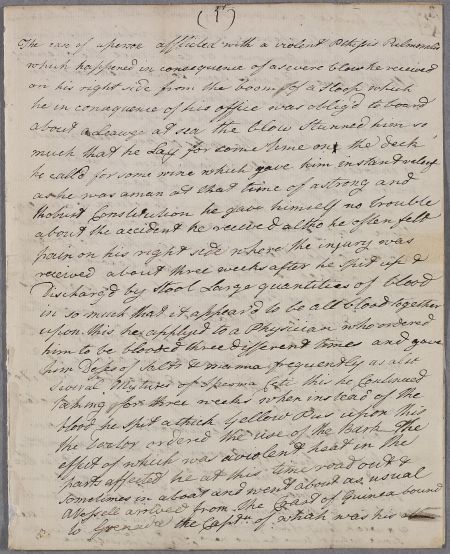 (1st)
The case of a person afflicted with a violent Pthisis Pulmonalis
which happened in consequence of a severe blow he received
on his right side from the boom of a Sloop which
he in consequence of his office was oblig'd to board
about a Leauge at sea the blow Stunned him so
much that he Lay for some time on the deck
he call'd for some wine which gave him instant relief
as he was a man at that time of a strong and
Robust Constitution he gave himself no trouble
about the accident he received altho he often felt
pain on his right side where the injury was
received about three weeks after he Spit up &
Discharg'd by Stool Large quantities of blood
in so much that it appear'd to be all blood together
upon this he apply'd to a Physician who ordered
him to be blooded three different times and gave
him Doses of Salts & manna frequently as also
Several Mixtures of Sperma Ceti this he Continued
taking for three weeks when instead of the
blood he spit a thick Yellow Pus upon this
the Doctor ordered the use of the Bark the
effect of which was a violent heat in the
part affected he at this time road out &
Sometimes in a boat and went about as usual
a Vessele arrived from the Coast of Guinea bound
to Grenada the Captn. of which was his